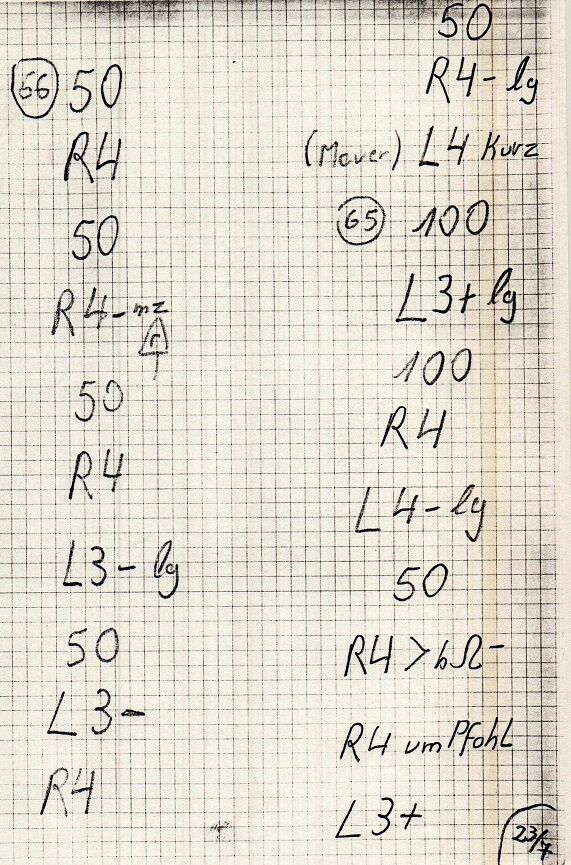 56 50
R4
50
R4- mz
50
R4
L3- lg
50
L3-
R4
50
R4- lg
(Mauer) L4 Kurz
65 100
L3+ lg
100
R4
L4- lg
50
R4 >
R4 um Pfohl
L3+
23/7